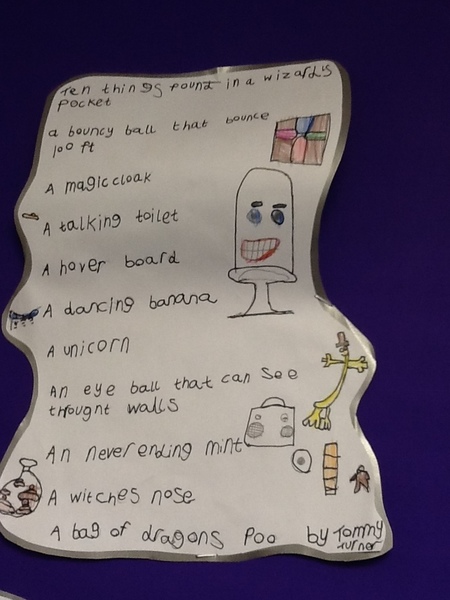 Ten things found in a wizard's
pocket
a bouncy ball that bounce
100 ft
A magic cloak
A talking toilet
A hover board
A dancing banana
A unicorn
An eye ball that can see
throught walls
An never ending mint
A witches nose
A bag of dragons Poo by Tommy
Turner